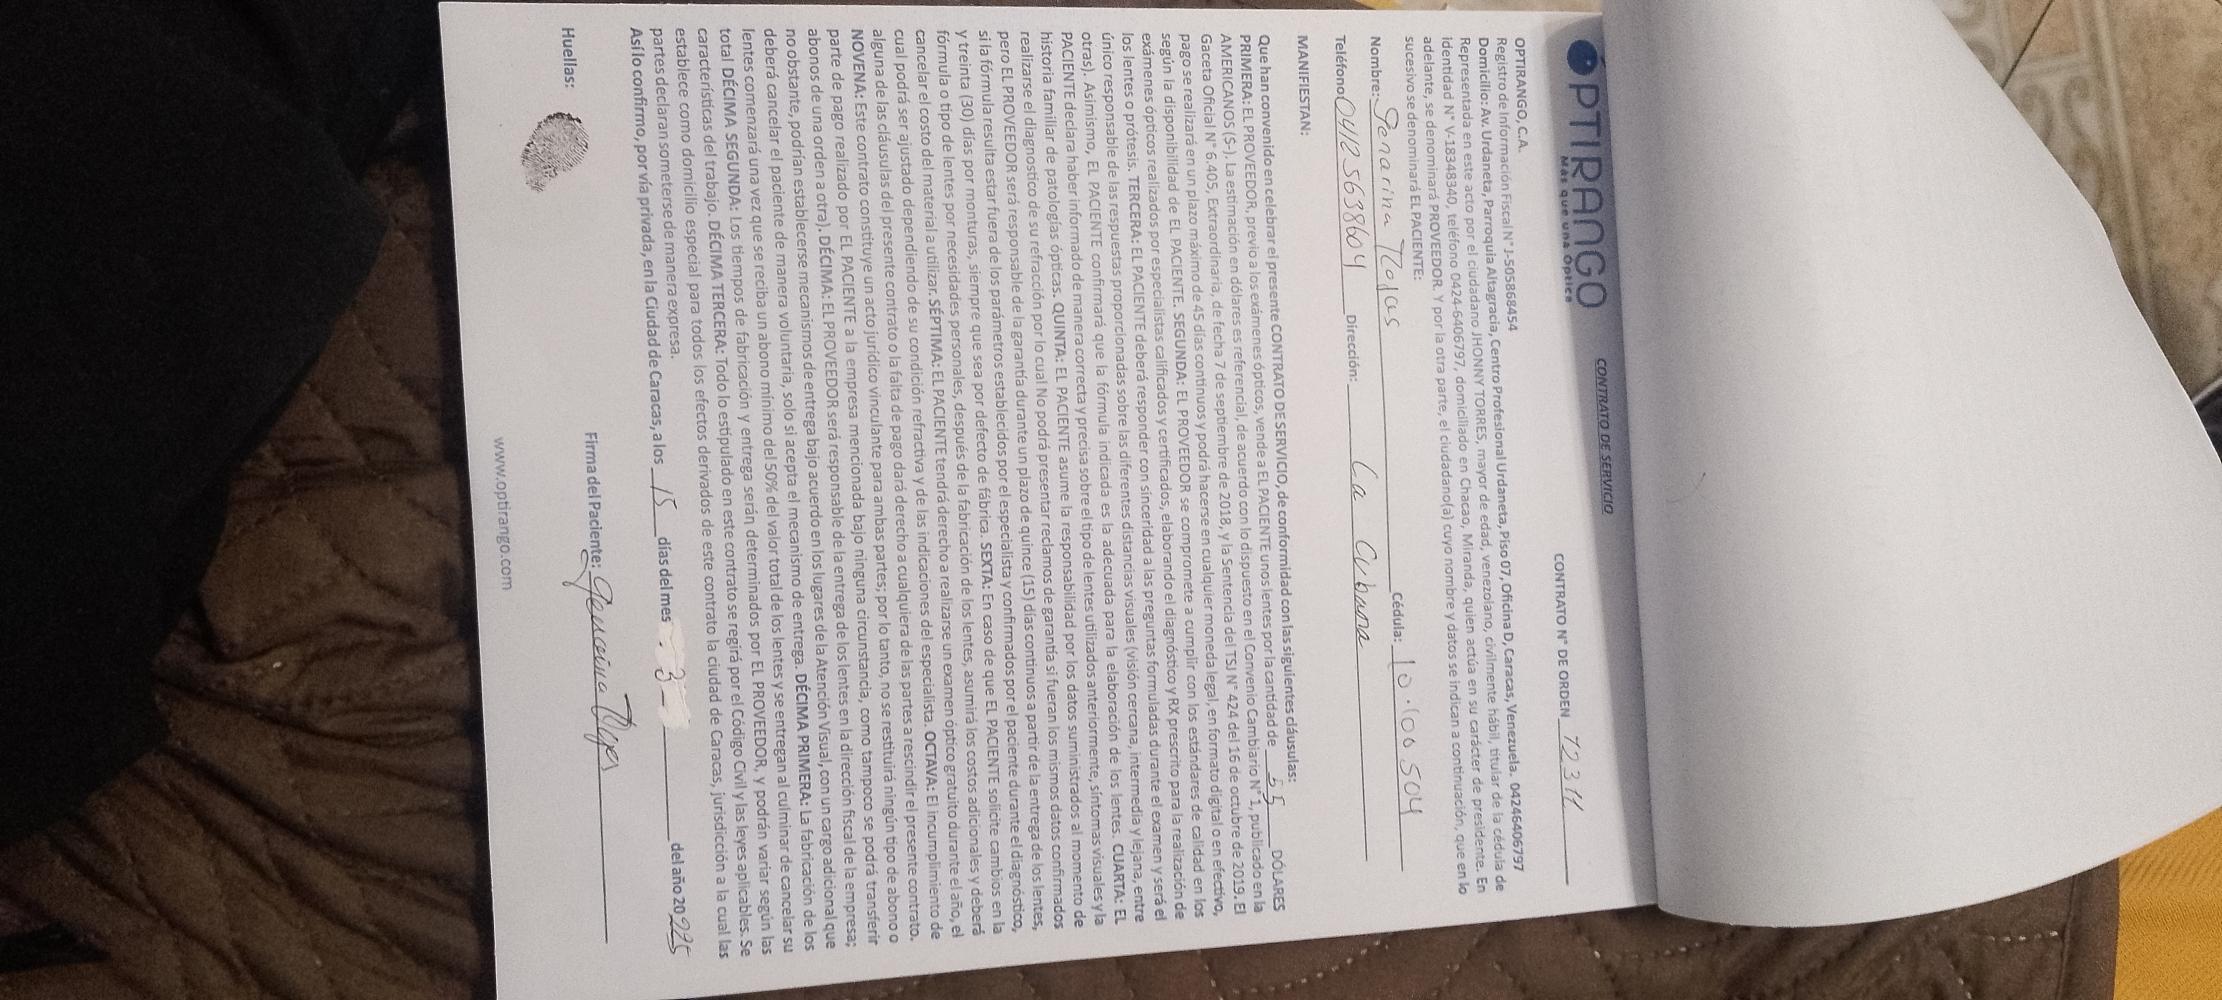 OPTIRANGO
Más que una Óptica
CONTRATO DE SERVICIO
CONTRATO N° DE ORDEN 72311
OPTIRANGO, C.A.
Registro de Información Fiscal N° J-505868454
Domicilio: Av. Urdaneta, Parroquia Altagracia, Centro Profesional Urdaneta, Piso 07, Oficina D, Caracas, Venezuela. 04246406797
Representada en este acto por el ciudadano JHONNY TORRES, mayor de edad, venezolano, civilmente hábil, titular de la cédula de
identidad N° V-18348340, teléfono 0424-6406797, domiciliado en Chacao, Miranda, quien actúa en su carácter de presidente. En
adelante, se denominará PROVEEDOR. Y por la otra parte, el ciudadano(a) cuyo nombre y datos se indican a continuación, que en lo
sucesivo se denominará EL PACIENTE:
Nombre: Cédula: 10.100504
Teléfono 04125638604 Dirección: La Cubana
MANIFIESTAN:
Que han convenido en celebrar el presente CONTRATO DE SERVICIO, de conformidad con las siguientes cláusulas:
PRIMERA: EL PROVEEDOR, previo a los exámenes ópticos, vende a EL PACIENTE unos lentes por la cantidad de 55 DÓLARES
AMERICANOS ($-). La estimación en dólares es referencial, de acuerdo con lo dispuesto en el Convenio Cambiario N° 1, publicado en la
Gaceta Oficial N° 6.405, Extraordinaria, de fecha 7 de septiembre de 2018, y la Sentencia del TSJ N° 424 del 16 de octubre de 2019. El
pago se realizará en un plazo máximo de 45 días continuos y podrá hacerse en cualquier moneda legal, en formato digital o en efectivo,
según la disponibilidad de EL PACIENTE. SEGUNDA: EL PROVEEDOR se compromete a cumplir con los estándares de calidad en los
exámenes ópticos realizados por especialistas calificados y certificados, elaborando el diagnóstico y RX prescrito para la realización de
los lentes o prótesis. TERCERA: EL PACIENTE deberá responder con sinceridad a las preguntas formuladas durante el examen y será el
único responsable de las respuestas proporcionadas sobre las diferentes distancias visuales (visión cercana, intermedia y lejana, entre
otras). Asimismo, EL PACIENTE confirmará que la fórmula indicada es la adecuada para la elaboración de los lentes. CUARTA: EL
PACIENTE declara haber informado de manera correcta y precisa sobre el tipo de lentes utilizados anteriormente, síntomas visuales y la
historia familiar de patologías ópticas. QUINTA: EL PACIENTE asume la responsabilidad por los datos suministrados al momento de
realizarse el diagnostico de su refracción por lo cual No podrá presentar reclamos de garantía si fueran los mismos datos confirmados
pero EL PROVEEDOR será responsable de la garantía durante un plazo de quince (15) días continuos a partir de la entrega de los lentes,
si la fórmula resulta estar fuera de los parámetros establecidos por el especialista y confirmados por el paciente durante el diagnóstico,
y treinta (30) días por monturas, siempre que sea por defecto de fábrica. SEXTA: En caso de que EL PACIENTE solicite cambios en la
fórmula o tipo de lentes por necesidades personales, después de la fabricación de los lentes, asumirá los costos adicionales y deberá
cancelar el costo del material a utilizar. SÉPTIMA: EL PACIENTE tendrá derecho a realizarse un examen óptico gratuito durante el año, el
cual podrá ser ajustado dependiendo de su condición refractiva y de las indicaciones del especialista. OCTAVA: El incumplimiento de
alguna de las cláusulas del presente contrato o la falta de pago dará derecho a cualquiera de las partes a rescindir el presente contrato.
NOVENA: Este contrato constituye un acto jurídico vinculante para ambas partes; por lo tanto, no se restituirá ningún tipo de abono o
parte de pago realizado por EL PACIENTE a la empresa mencionada bajo ninguna circunstancia, como tampoco se podrá transferir
abonos de una orden a otra). DÉCIMA: EL PROVEEDOR será responsable de la entrega de los lentes en la dirección fiscal de la empresa;
no obstante, podrían establecerse mecanismos de entrega bajo acuerdo en los lugares de la Atención Visual, con un cargo adicional que
deberá cancelar el paciente de manera voluntaria, solo si acepta el mecanismo de entrega. DÉCIMA PRIMERA: La fabricación de los
lentes comenzará una vez que se reciba un abono mínimo del 50% del valor total de los lentes y se entregan al culminar de cancelar su
total DÉCIMA SEGUNDA: Los tiempos de fabricación y entrega serán determinados por EL PROVEEDOR, y podrán variar según las
características del trabajo. DÉCIMA TERCERA: Todo lo estipulado en este contrato se regirá por el Código Civil y las leyes aplicables. Se
establece como domicilio especial para todos los efectos derivados de este contrato la ciudad de Caracas, jurisdicción a la cual las
partes declaran someterse de manera expresa.
Así lo confirmo, por vía privada, en la Ciudad de Caracas, a los 15 días del mes 3 del año 20225
Huellas: Firma del Paciente:
www.optirango.com